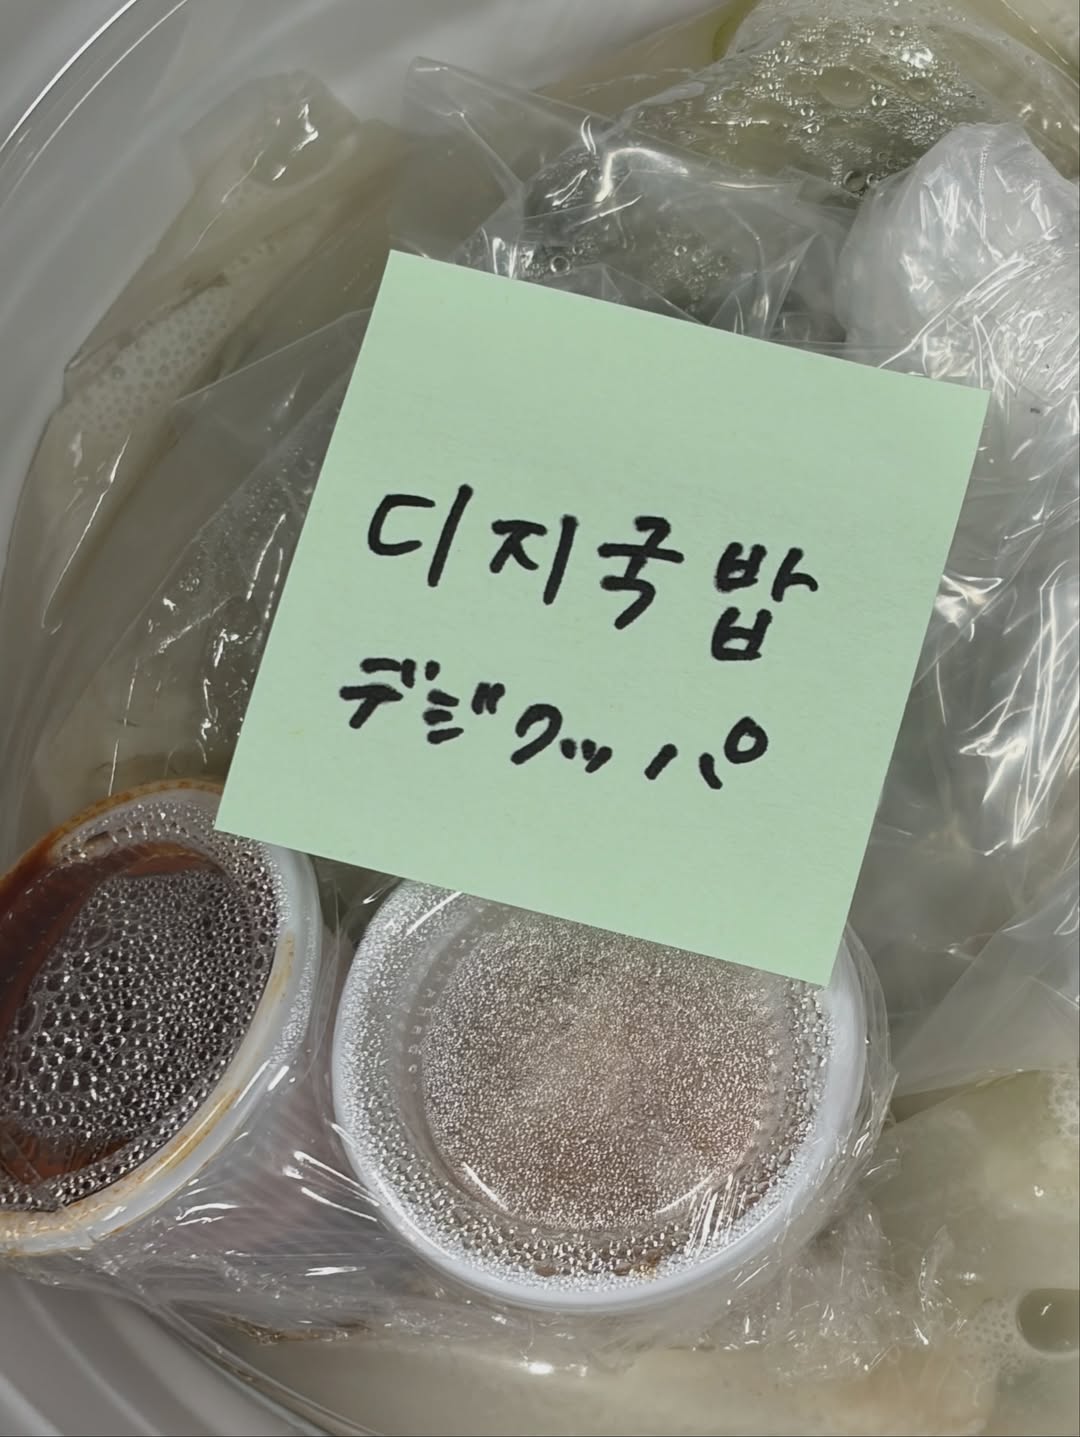 디지국밥
デジクッパ